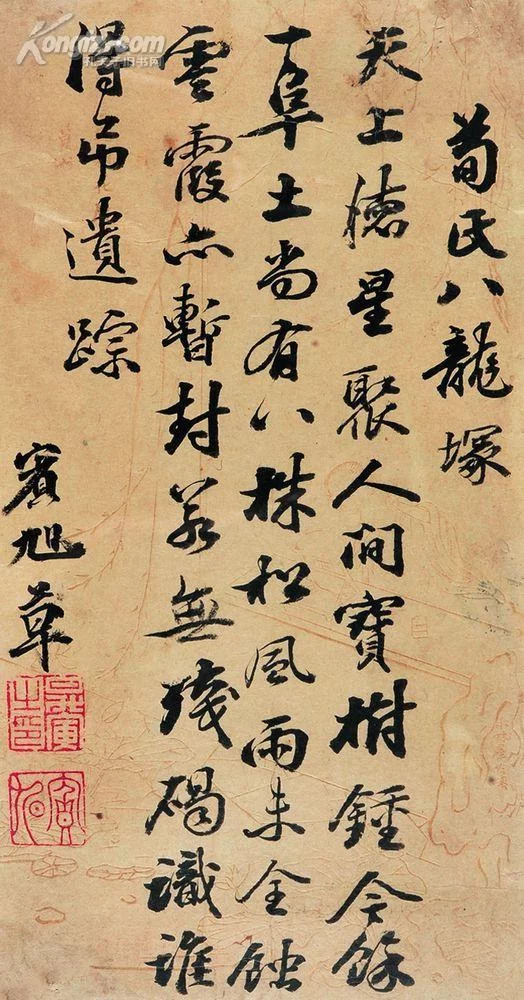 荀氏八龍塚
天上德星聚人間寶樹鍾今餘
一阜土尚有八株松風雨未全蝕
雲霞亦暫封若無殘碣識誰
得弔遺踪
賓旭草
Kongfz.com
孔夫子旧书网